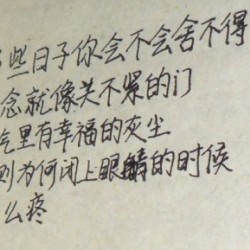 些日子你会不会舍不得
念就像关不紧的门
气里有幸福的灰尘
则为何闭上眼睛的时候
么疼